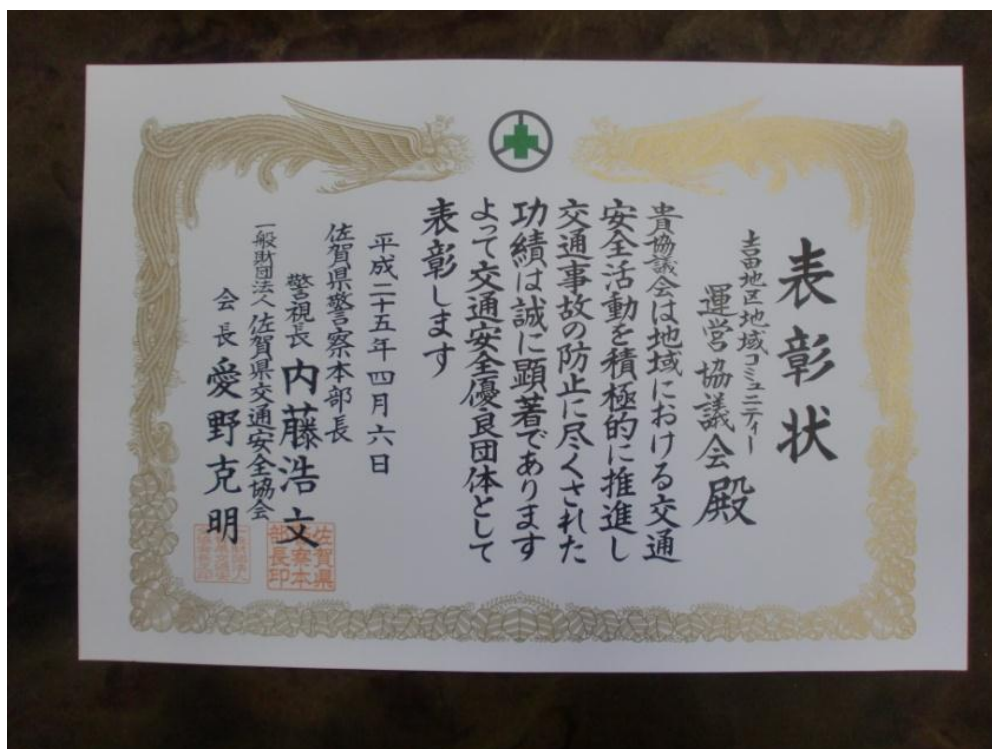 表彰状
吉田地区地域コミュニティー
運営協議会殿
貴協議会は地域における交通
安全活動を積極的に推進し
交通事故の防止に尽くされた
功績は誠に顕著であります
よって交通安全優良団体として
表彰します
平成二十五年四月六日
佐賀県警察本部長
警視長 内藤浩文
一般財団法人 佐賀県交通安全協会
会長 愛野克明
佐賀県
警察本
部長印